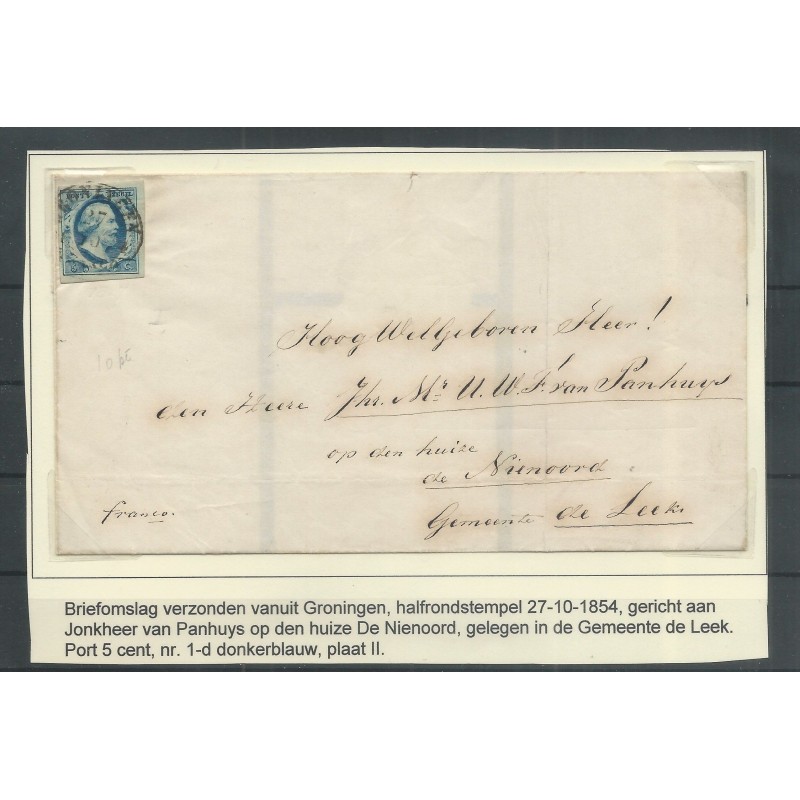 Hoog WelGeboren Heer!
den Heere Jhr. Mr. U. W. F. van Panhuys
op den huize
de Nienoord
Gemeente de Leek
franco.
Briefomslag verzonden vanuit Groningen, halfrondstempel 27-10-1854, gericht aan
Jonkheer van Panhuys op den huize De Nienoord, gelegen in de Gemeente de Leek.
Port 5 cent, nr. 1-d donkerblauw, plaat II.